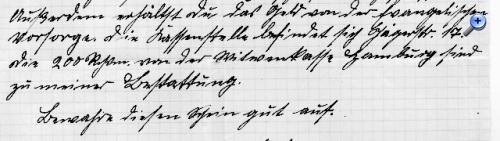 Außerdem erhältst du das Geld von der Evangelischen
Vorsorge. Die Kassenstelle befindet sich
die 200 RM. von der Witwenkasse Hamburg sind
zu meiner Bestattung.
Bewahre diesen Schein gut auf.